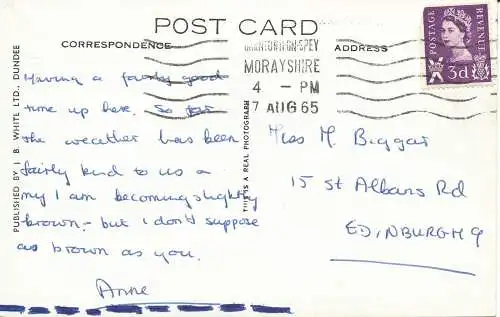 POST CARD
CORRESPONDENCE
ADDRESS
GRANTOWN-ON-SPEY
MORAYSHIRE
4 - PM
7 AUG 65
POSTAGE
REVENUE
3d
Having a fairly good
time up here. So far
the weather has been
fairly kind to us &
my I am becoming slightly
brown - but I don't suppose
as brown as you.
Anne
Miss M. Biggar
15 St Albans Rd
EDINBURGH 9
PUBLISHED BY J. B. WHITE LTD., DUNDEE
THIS IS A REAL PHOTOGRAPH